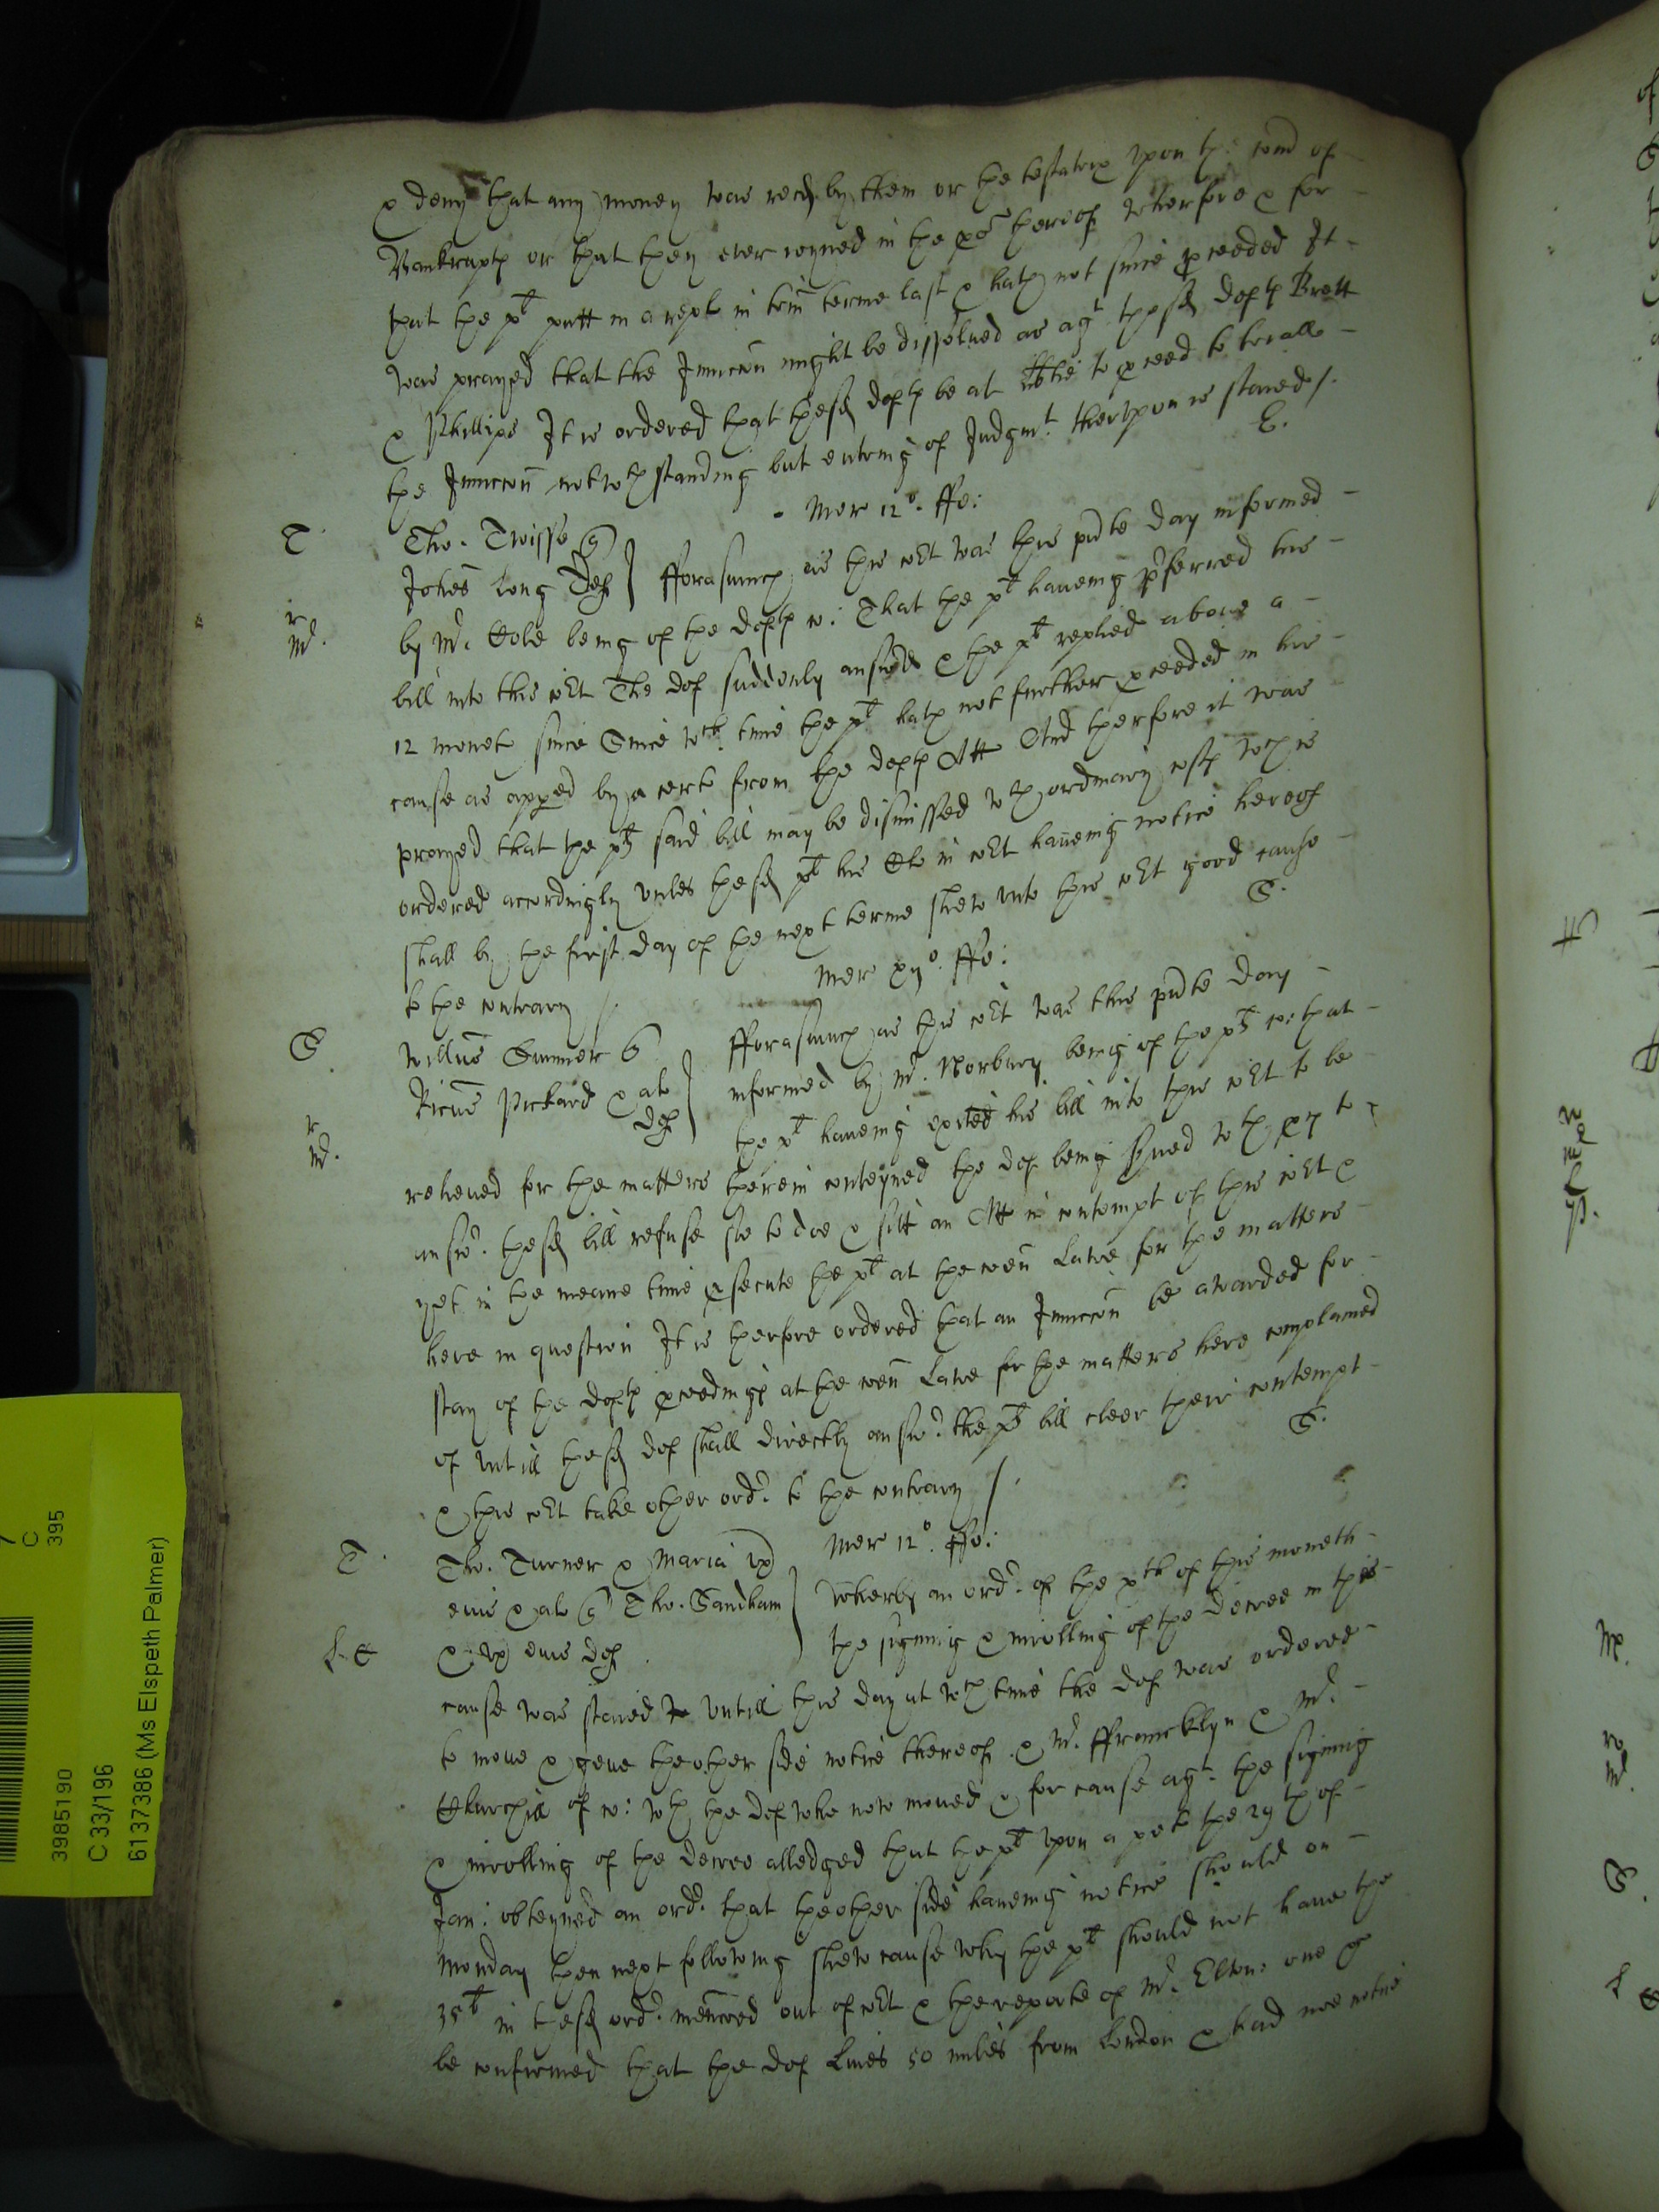 & deny that any money was recd by them or the testatrix upon the comd of
Bankrupts or that they ever ioyned in the thereof Wherfore & for
that the plt putt in a repl in trin terme last & hath not since proceeded It
was prayed that the Iniuccon might be dissolued as agt the sd defts Brett
& Phillips It is ordered that the sd defts be at libtie to proceed to triall
the Iniuccon notwthstanding but entring of Iudgmt therupon is staied /.
E.
Mer 12o. ffe:
T
Tho. Twisse q
Johes Long Def
fforasmuch as this cort was this pnte day informed
r
md.
by Mr. Cole being of the defts co: That the plt haueing pferred his
bill into this cort The def suddenly answerd & the plt replied aboue a
12 moneth since Since wch. time the plt hath not further proceeded in his
cause as appeed by a certe from the defts Att And therfore it was
prayed that the plts said bill may be dismissed wth ordinary costs wch is
ordered accordingly vnles the sd plt his Cl in cort haueing notice hereof
shall by the first day of the next terme shew vnto this cort good cause
to the contrary /.
S.
Mer xijo. ffe:
S.
Willus Sumner q
Ricus Pickard & al
def
fforasmuch as this cort was this pnte day
informed by Mr. Norbury being of the plts co: that
the plt haueing exited his bill into this cort to be
r
md.
releiued for the matters therein conteyned the def being serued wth proces to
answr. the sd bill refuse soe to doe & sitt an Att in contempt of this cort &
yet in the meane time psecute the plt at the comon Lawe for the matters
here in question It is therfore ordered that an Iniuccon be awarded for
stay of the defts proceedings at the comon Lawe for the matters here complained
of vntill the sd def shall directly answr. the plts bill cleer their contempt
& this cort take other ordr. to the contrary /.
S.
Mer 12o. ffe:
T.
Tho. Turner & Maria vx
eius & al q Tho. Sandham
& vx eius def.
Wherby an ordr. of the xth of this moneth
the signing & inrolling of the decree in this
cause was staied vntill this day at wch time the def was ordered
to moue & geue theother side notice thereof & Mr. ffrancklyn & Mr.
Churchill of co: wth the def who now moued & for cause agt. the signing
& inrolling of the decree alledged that the plt vpon a pet the 29th of
Jan: obteyned an ordr. that theother side haueing notice should on
Monday then next following shew cause why the plt should not haue the
35l in the sd ordr. menconed out of cort & the reporte of Mr. Elton: one
be confirmed that the def Liues 50 miles from London & had noe notice
3985190
C 33/196
61737386 (Ms Elspeth Palmer)
C
395